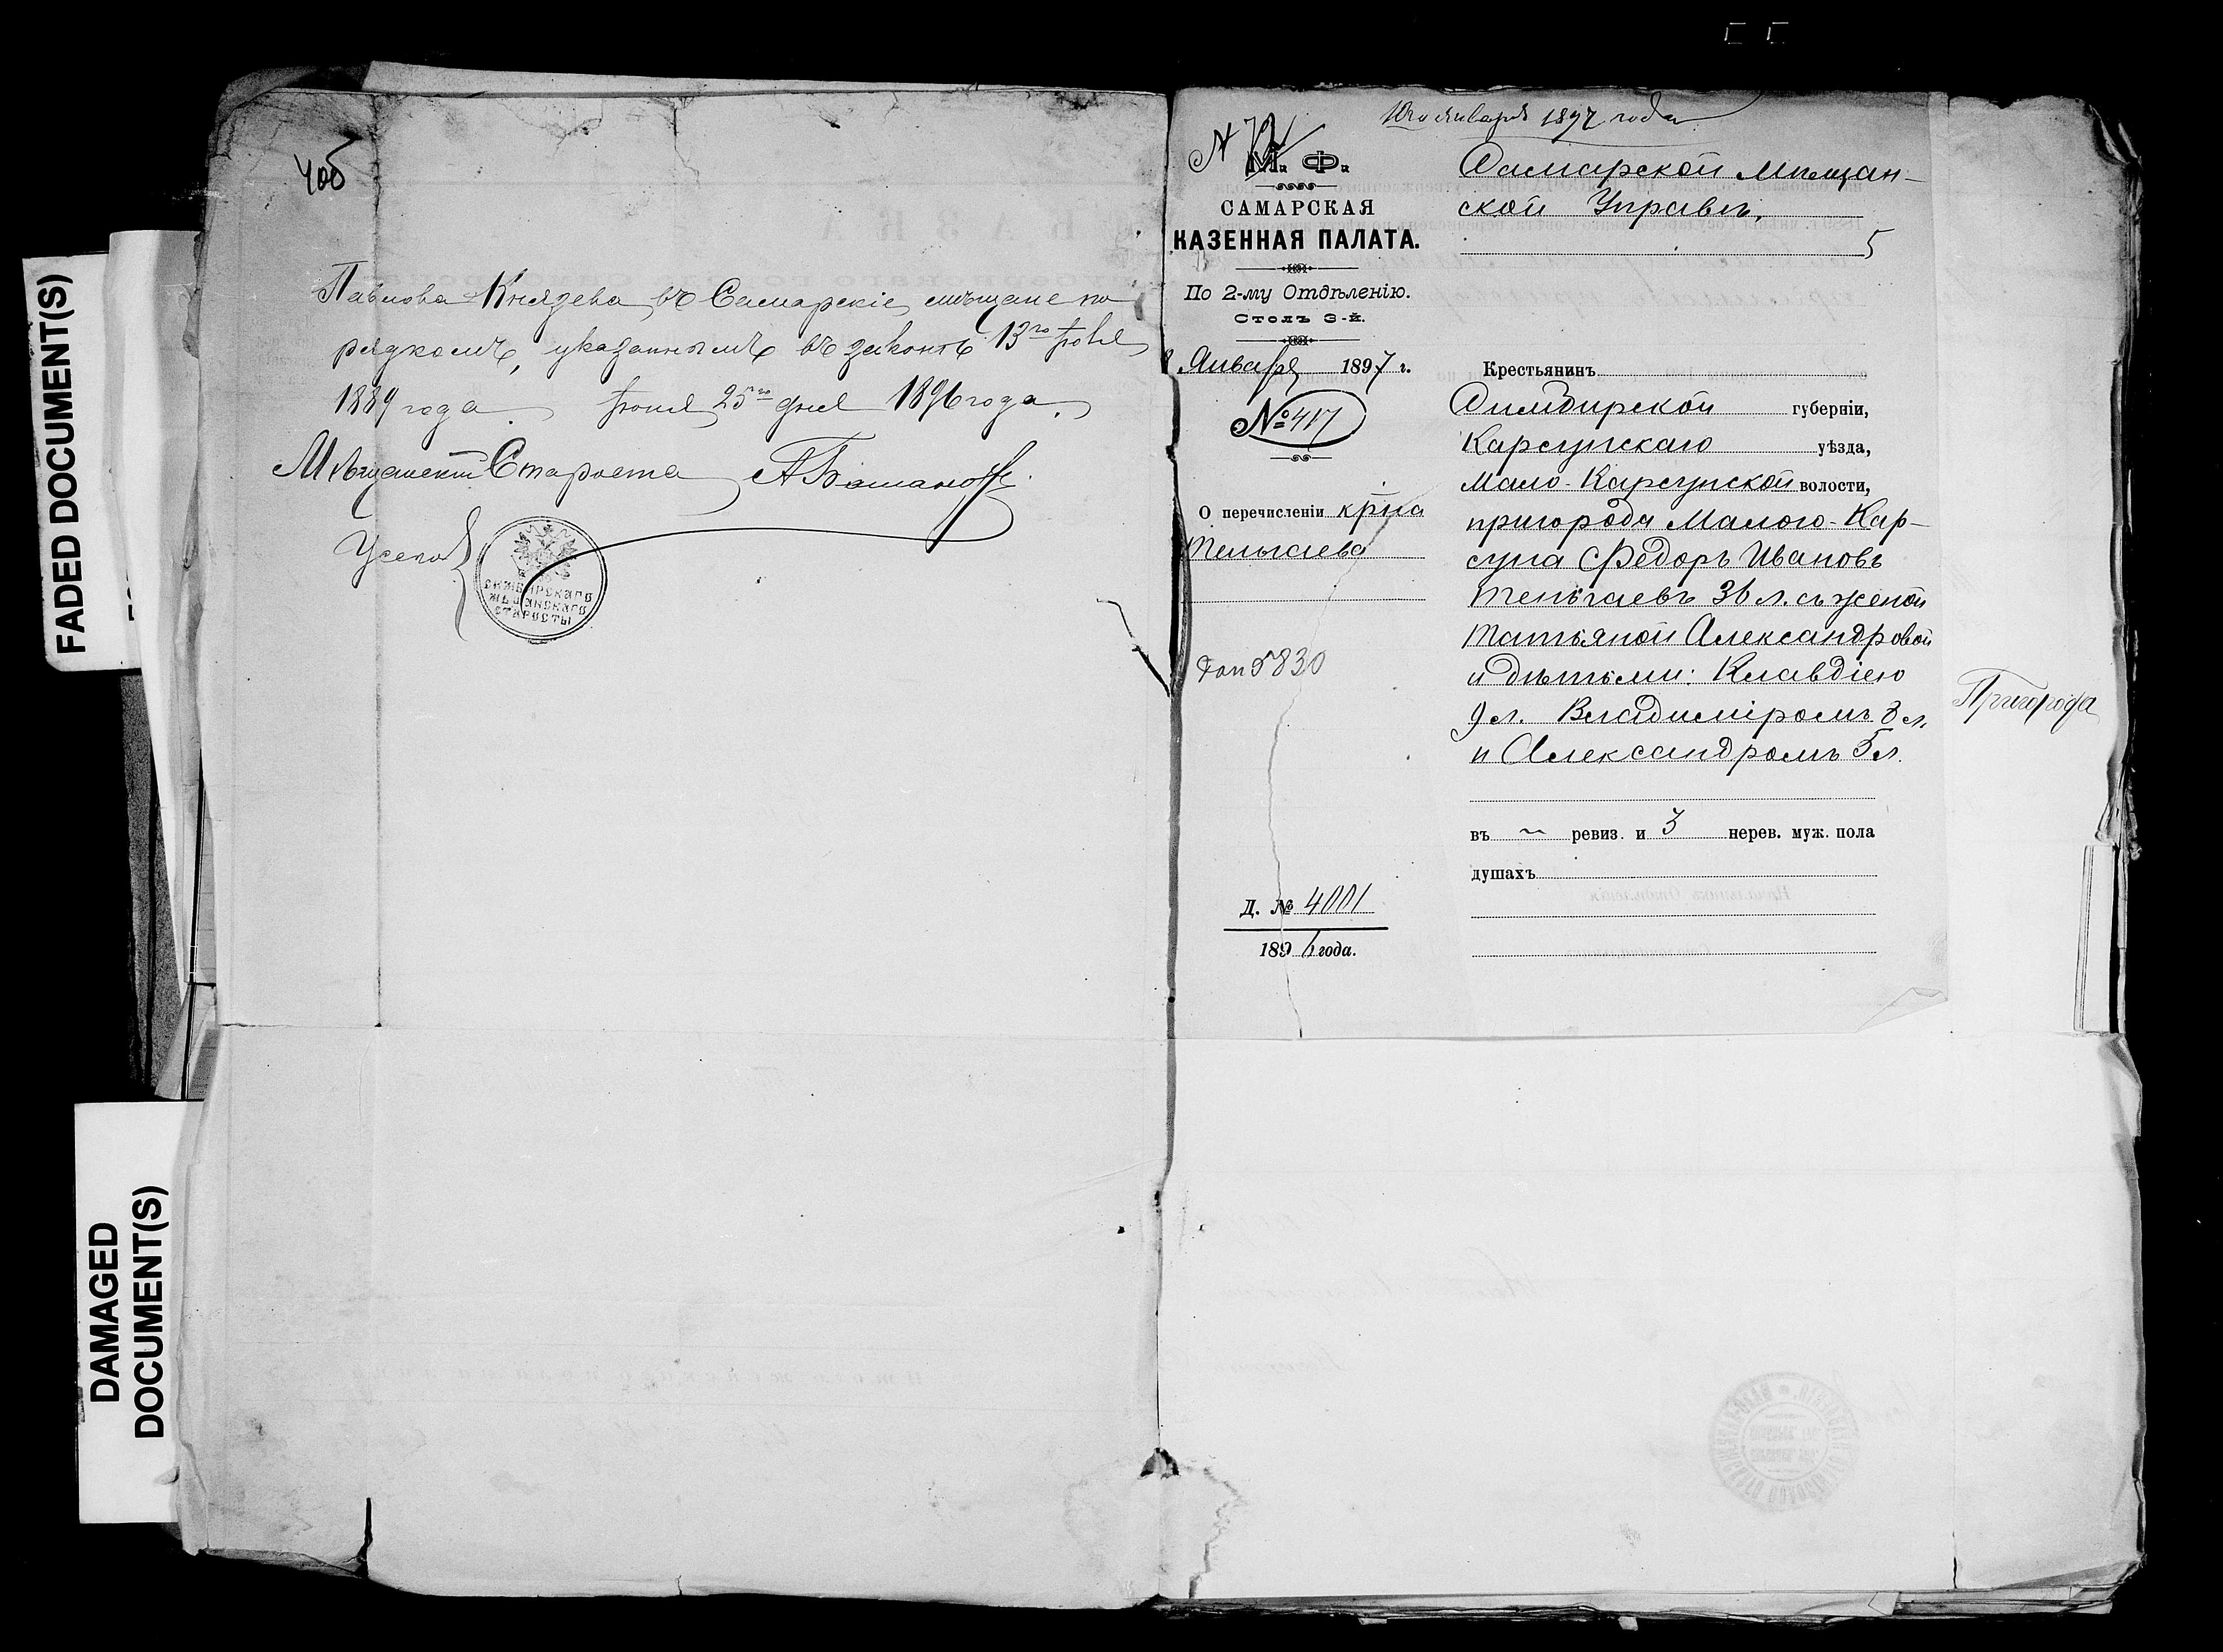 FADED DOCUMENT(S)
DAMAGED
DOCUMENT(S)
406
Павлова Князева въ Самарскіе мѣщане по
рядкомъ, указаннымъ въ законѣ 13го Іюня
1889 года Іюня 25го дня 1896 года.
Мѣщанскій Староста
СИМБИРСКАГО
МѢЩАНСКАГО
СТАРОСТЫ
10го Января 1897 года
М. Ф.
САМАРСКАЯ
КАЗЕННАЯ ПАЛАТА.
По 2-му Отдѣленію.
Столъ 3-й.
Января 1897 г.
№ 417
О перечисленіи крна
Теньгаева
5830
Д. № 4001
1896 года.
Самарской Мѣщан-
ской Управѣ.
5
Крестьянинъ
Симбирской губерніи,
Карсунскаго уѣзда,
Мало-Карсунской волости,
пригорода Малого-Кар-
суна Федоръ Ивановъ
Теньгаевъ 36 л. съ женой
Татьяной Александровой
и дѣтьми: Клавдіею
9 л. Владиміромъ 8 л.
и Александромъ 5 л.
въ ~ ревиз. и 3 нерев. муж. пола
душахъ
Пригорода